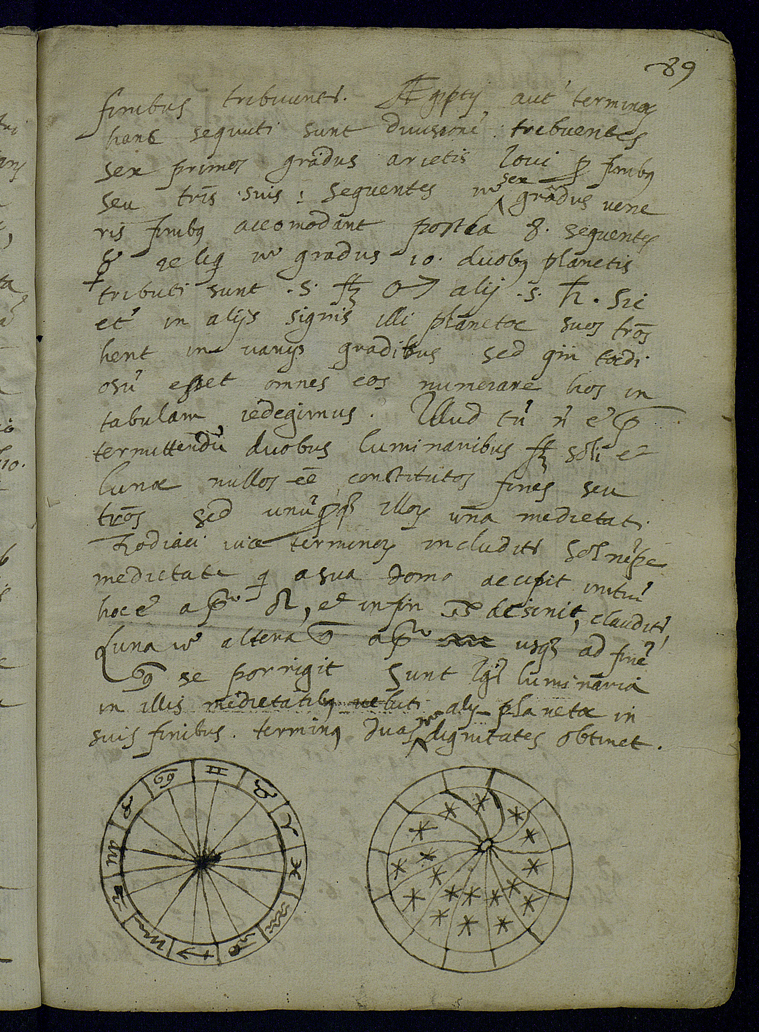 89
finibus tribuunt. Ægiptij aut termino
hanc sequuti sunt divisione tribuentes
sex primos gradus arietis Iovi p finibq
seu tris suis : sequentes vo sex gradus vene
ris finibq accomodant postea 8. sequentes
☿ reliq vo gradus 10. duobq planetis
tributi sunt .s. ♂ alij .s. ♄. Sic
et in alijs signis illi planetæ suos tros
hent in varijs gradibus sed qm tœdi
osu esset omnes eos numerare hos in
tabulam redegimus. Illud tn n e p
termittendu duobus luminaribus soli et
lunæ nullos eē constitutos fines seu
tros sed unuqq illor una medietat
Zodiaci vice terminor includit Sol nepe
medietate q a sua domo accipit initiu
hoc e a po ♌, et in fin ♑ desinit, claudit,
Luna vo altera a po usq ad fine
♋ se porrigit Sunt igr luminaria
in illis medietatibq uti alij planetæ in
suis finibus. terminq duas vo dignitates obtinet.
♋ ♊ ♉ ♈ ♓ ♒ ♑ ♐ ♏ ♎ ♍ ♌